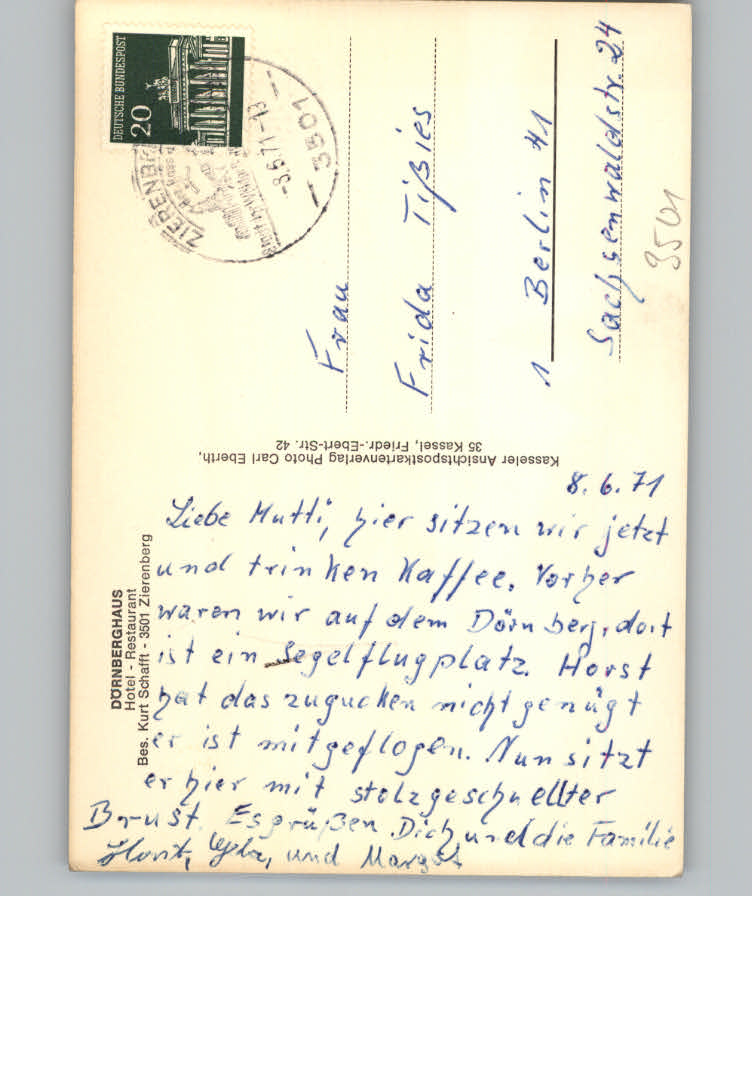 DEUTSCHE BUNDESPOST
20
3501
-8.6.71-13
Frau
Frida Tißies
1 Berlin 41
Sachsenwaldstr. 24
3501
Kasseler Ansichtspostkartenverlag Photo Carl Eberth,
35 Kassel, Friedr.-Ebert-Str. 42
DÖRNBERGHAUS
Hotel - Restaurant
Bes. Kurt Schafft - 3501 Zierenberg
8.6.71
Liebe Mutti, hier sitzen wir jetzt
und trinken Kaffee. Vorher
waren wir auf dem Dörnberg, dort
ist ein Segelflugplatz. Horst
hat das zugucken nicht genügt
er ist mitgeflogen. Nun sitzt
er hier mit stolzgeschwellter
Brust. Es grüßen Dich und die Familie
Horst, und Margot